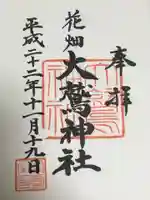 奉拝
花畑
大鷲神社
平成二十二年十一月十九日